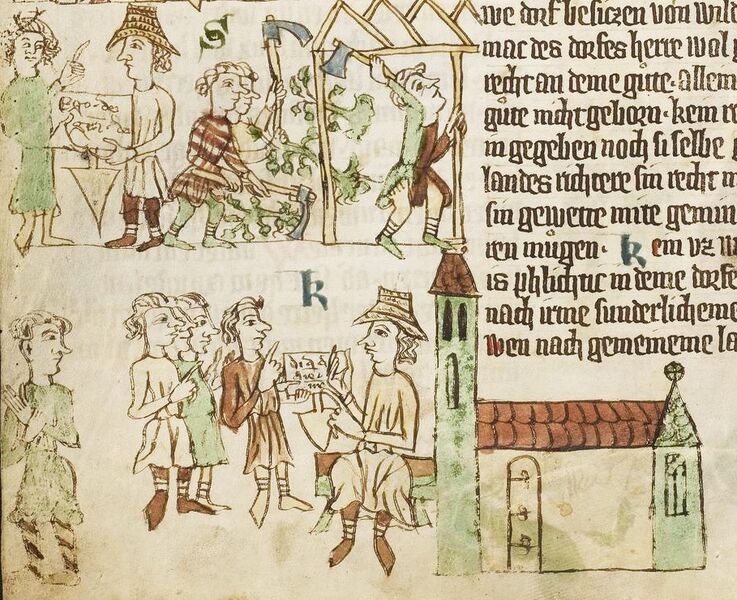 S
we dorf besiczen von wild
mac des dorfes herre wol
recht an deme gute. allem
gute nicht geborn. kem re
in gegeben noch si selbe
landes richtere sin recht
sin gewette mite gemin
ren mugen. k em vz
is phlichtic in deme dorfe
nach irme sunderlicheme
wen nach gemeineme la
k